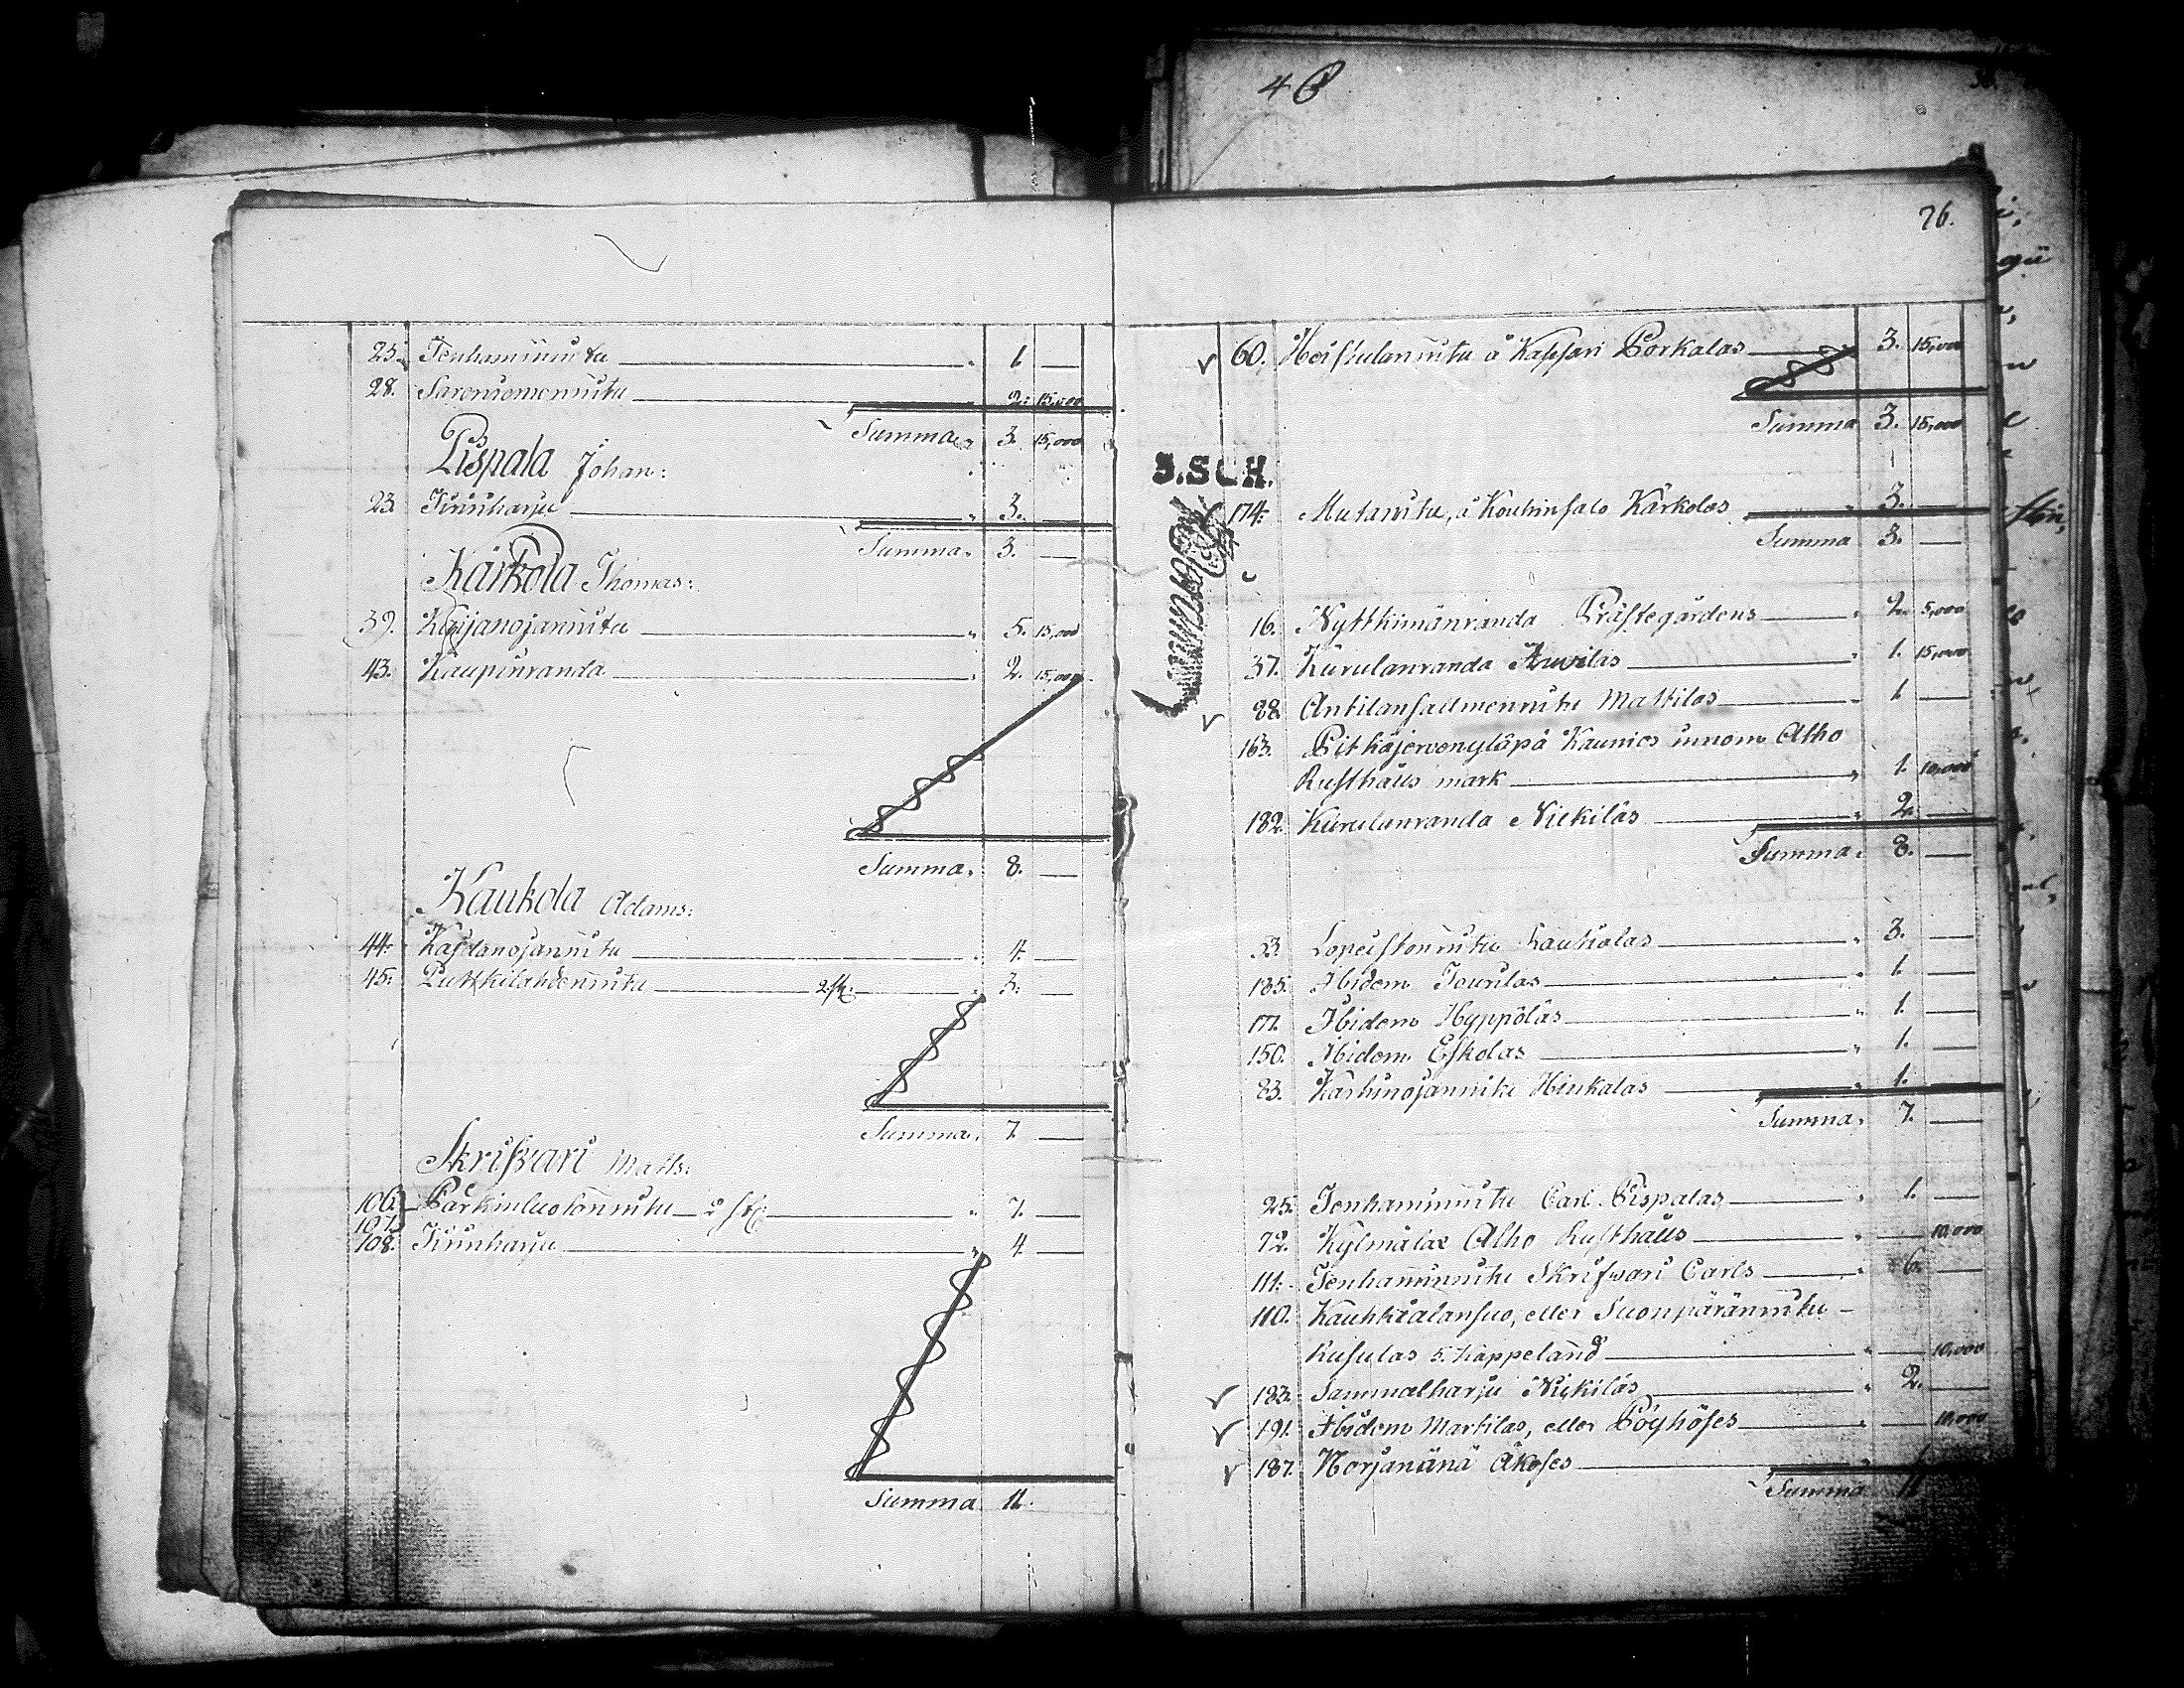 4
76.
25. Tenhaminnitu 1 —
28. Sarensomennitu 2. 15,000
Summa 3. 15,000
Pispala Johan:
23. Jinnharju 3. —
Summa. 3. —
Kärkola Thomas:
39. Karjanojannitu 5. 15,000
43. Kaupinranda 2. 15,000
Summa. 8. —
Kaukola Adams:
44. Kastanojannitu 4. —
45. Putkkilahdennitu 2. st: 3. —
Summa. 7. —
Skrifvari Matts:
106. Parkinluotonnitu 2 st: 7. —
107.
108. Jinnharju 4. —
Summa 11.
60. Heistulannitu à Kappari Porkalas 3. 15,000
Summa 3. 15,000
3.SCH.
174. Mutanitu, à Kouhinsalo Kärkolas 3. —
Summa 3. —
16. Nyttkimänranda Prästegårdens 2. 5,000
37. Kurulanranda Auvilas 1. 15,000
88. Antilansalmennitu Mattilas 1 —
163. Pitkäjervenyläpä Kaunics innom Alho
Rusthålls mark 1. 10,000
182. Kurulanranda Nickiläs 2. —
Summa. 8. —
53. Lopeistonnitu Kautialas 3. —
185. Ibidem Jourilas 1. —
177. Ibidem Hyppöläs 1. —
150. Ibidem Eskolas 1. —
83. Karhunojannitu Hinkalas 1. —
Summa. 7. —
25. Tenhaminnitu Carl Pispalas 1. —
72. Kylmälae Alho Rusthålls — 10,000
111. Tenhaminnitu Skrifvari Carls 6. —
110. Kauhkialansuo, eller Suonpärännitu
Rusulas 5. Kappeland — 10,000
183. Sammalharju Nickiläs 2. —
191. Ibidem Martilas, eller Pöyhöses — 10,000
187. Norjanänä Äkeses
Summa 11